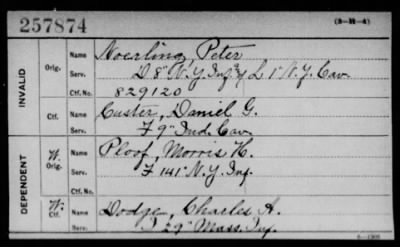 257874 (3-H-4)
INVALID Orig. Name Noerling, Peter
Serv. D 8" N.Y. Inf. & L 1" N.Y. Cav.
Ctf. No. 829120
Ctf. Name Custer, Daniel G.
Serv. F 9" Ind. Cav.
DEPENDENT W. Orig. Name Ploof, Morris H.
Serv. F 141" N.Y. Inf.
Ctf. No.
W. Ctf. Name Dodge, Charles A.
Serv. I 29" Mass. Inf.